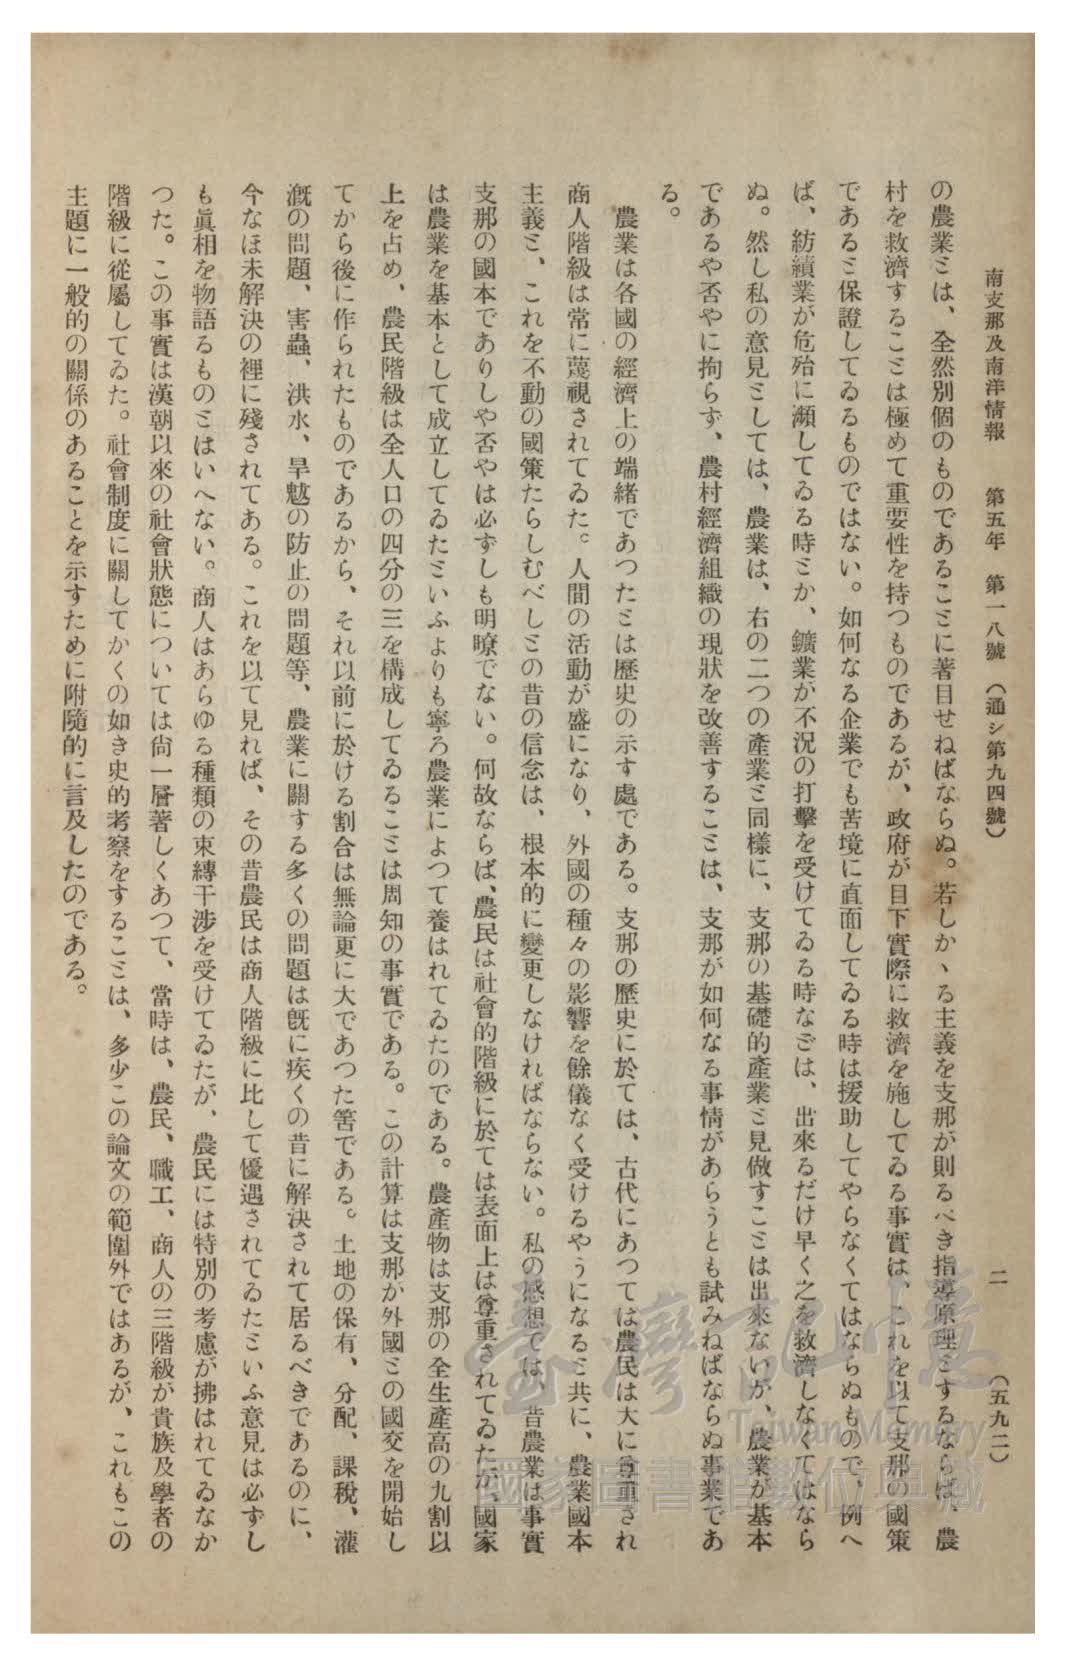 南支那及南洋情報　第五年　第一八號　（通シ第九四號）　二　（五九二）
の農業とは、全然別個のものであることに著目せねばならぬ。若しかゝる主義を支那が則るべき指導原理とするならば、農
村を救濟することは極めて重要性を持つものであるが、政府が目下實際に救濟を施してゐる事實は、これを以て支那の國策
であると保證してゐるものではない。如何なる企業でも苦境に直面してゐる時は援助してやらなくてはならぬもので、例へ
ば、紡績業が危殆に瀕してゐる時とか、鑛業が不況の打擊を受けてゐる時などは、出來るだけ早く之を救濟しなくてはなら
ぬ。然し私の意見としては、農業は、右の二つの產業と同樣に、支那の基礎的產業と見做すことは出來ないが、農業が基本
であるや否やに拘らず、農村經濟組織の現狀を改善することは、支那が如何なる事情があらうとも試みねばならぬ事業であ
る。
農業は各國の經濟上の端緖であつたとは歷史の示す處である。支那の歷史に於ては、古代にあつては農民は大に尊重され
商人階級は常に蔑視されてゐた。人間の活動が盛になり、外國の種々の影響を餘儀なく受けるやうになると共に、農業國本
主義と、これを不動の國策たらしむべしとの昔の信念は、根本的に變更しなければならない。私の感想では、昔農業は事實
支那の國本でありしや否やは必ずしも明瞭でない。何故ならば、農民は社會的階級に於ては表面上は尊重されてゐたが、國家
は農業を基本として成立してゐたといふよりも寧ろ農業によつて養はれてゐたのである。農產物は支那の全生產高の九割以
上を占め、農民階級は全人口の四分の三を構成してゐることは周知の事實である。この計算は支那が外國との國交を開始し
てから後に作られたものであるから、それ以前に於ける割合は無論更に大であつた筈である。土地の保有、分配、課稅、灌
漑の問題、害蟲、洪水、旱魃の防止の問題等、農業に關する多くの問題は旣に疾くの昔に解決されて居るべきであるのに、
今なほ未解決の裡に殘されてある。これを以て見れば、その昔農民は商人階級に比して優遇されてゐたといふ意見は必ずし
も眞相を物語るものとはいへない。商人はあらゆる種類の束縛干涉を受けてゐたが、農民には特別の考慮が拂はれてゐなか
つた。この事實は漢朝以來の社會狀態については尙一層著しくあつて、當時は、農民、職工、商人の三階級が貴族及學者の
階級に從屬してゐた。社會制度に關してかくの如き史的考察をすることは、多少この論文の範圍外ではあるが、これもこの
主題に一般的の關係のあることを示すために附隨的に言及したのである。
臺灣記憶
Taiwan Memory
國家圖書館數位典藏